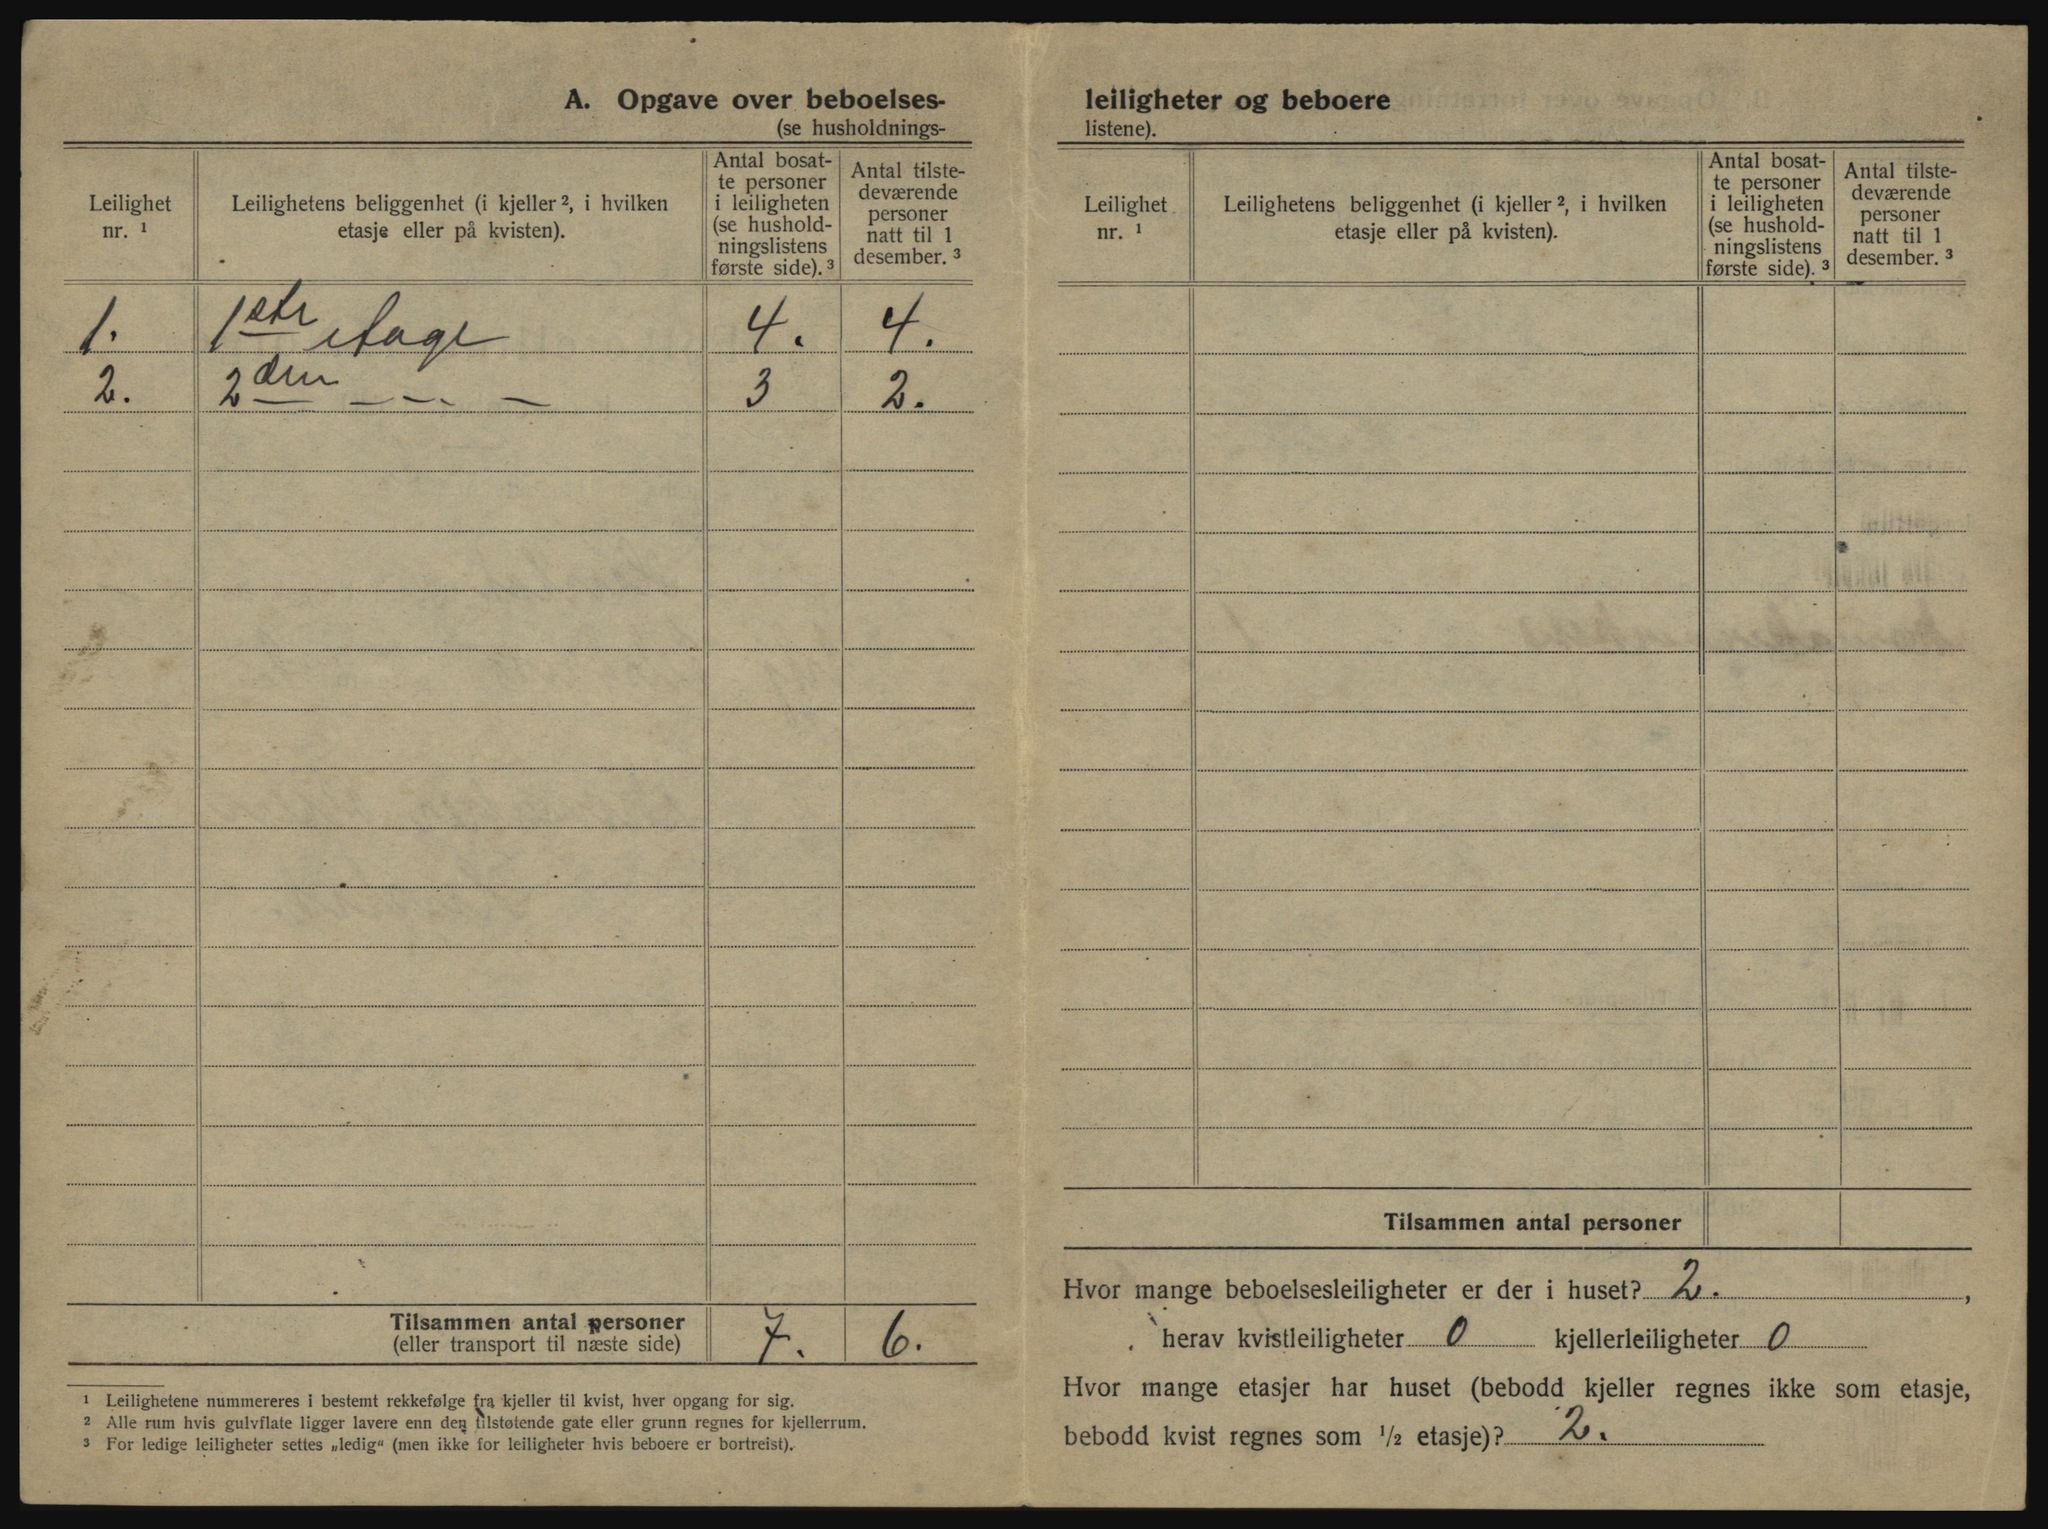 A. Opgave over beboelses-
(se husholdnings-
Leilighet
nr. ¹
Leilighetens beliggenhet (i kjeller ², i hvilken
etasje eller på kvisten).
Antal bosat-
te personer
i leiligheten
(se hushold-
ningslistens
første side). ³
Antal tilste-
deværende
personer
natt til 1
desember. ³
1. 1ste etage 4. 4.
2. 2den — — — — 3 2.
Tilsammen antal personer
(eller transport til næste side) 7. 6.
¹ Leilighetene nummereres i bestemt rekkefølge fra kjeller til kvist, hver opgang for sig.
² Alle rum hvis gulvflate ligger lavere enn den tilstøtende gate eller grunn regnes for kjellerrum.
³ For ledige leiligheter settes „ledig“ (men ikke for leiligheter hvis beboere er bortreist).
leiligheter og beboere
listene).
Leilighet
nr. ¹
Leilighetens beliggenhet (i kjeller ², i hvilken
etasje eller på kvisten).
Antal bosat-
te personer
i leiligheten
(se hushold-
ningslistens
første side). ³
Antal tilste-
deværende
personer
natt til 1
desember. ³
Tilsammen antal personer
Hvor mange beboelsesleiligheter er der i huset? 2.,
herav kvistleiligheter 0 kjellerleiligheter 0
Hvor mange etasjer har huset (bebodd kjeller regnes ikke som etasje,
bebodd kvist regnes som ½ etasje)? 2.